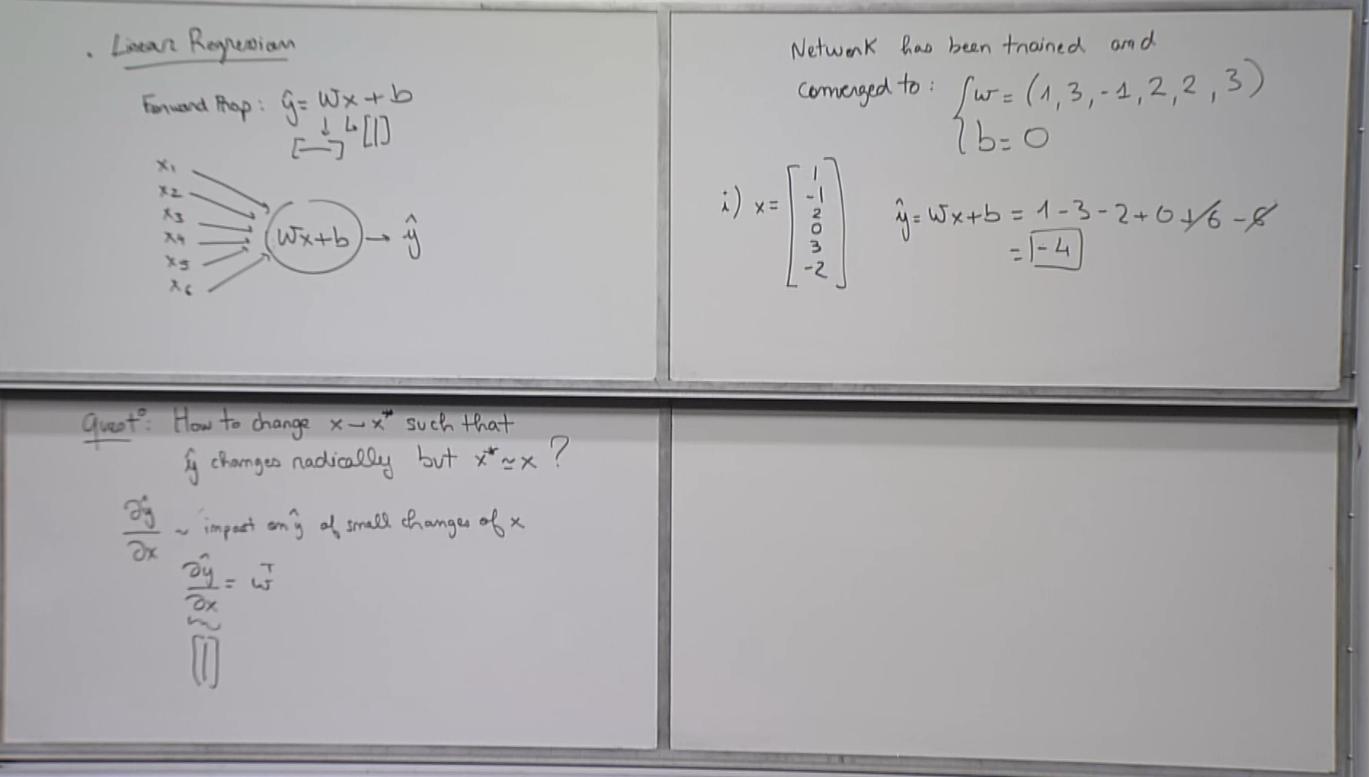 . Linear Regression
Forward Prop: ŷ = Wx + b
x₁
x₂
x₃
x₄
x₅
x₆
Wx+b → ŷ
Network has been trained and
converged to: { w = (1, 3, -1, 2, 2, 3)
b = 0
i) x = [1 -1 2 0 3 -2]
ŷ = Wx+b = 1 - 3 - 2 + 0 + 6 - 6
= -4
Quest°: How to change x → x* such that
ŷ changes radically but x* ≃ x ?
∂ŷ/∂x ~ impact on ŷ of small changes of x
∂ŷ/∂x = wᵀ